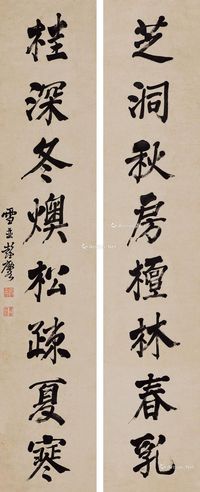 芝洞秋房檀林春乳
桂深冬燠松疎夏寒